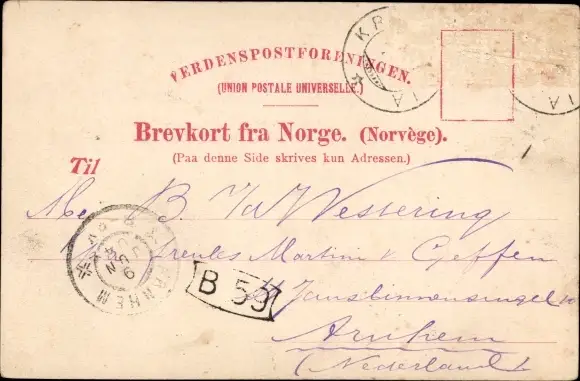 VERDENSPOSTFORENINGEN.
(UNION POSTALE UNIVERSELLE.)
Brevkort fra Norge. (Norvège).
(Paa denne Side skrives kun Adressen.)
Til
B. Wessering
Martin v Geffen
B 53
Jansbinnensingel
Arnhem
(Nederland)
ARNHEM